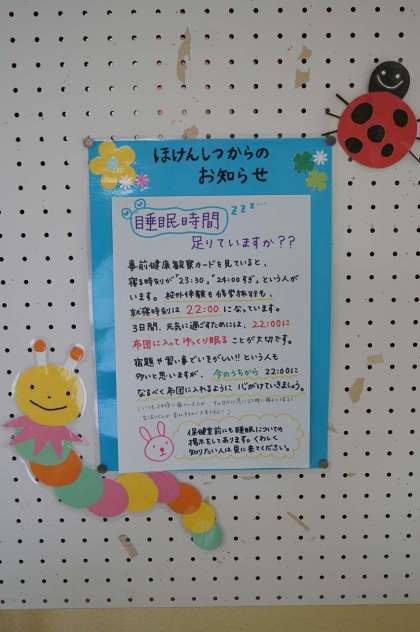 ほけんしつからの
お知らせ
zzz...
睡眠時間
足りていますか??
事前健康観察カードを見ていると、
寝る時刻が「23:30」「24:00すぎ」という人が
います。校外体験も修学旅行も、
就寝時刻は 22:00 になっています。
3日間、元気に過ごすためには、22:00に
布団に入ってゆっくり眠る ことが大切です。
宿題や習い事でいそがしい!! という人も
多いと思いますが、 今のうちから 22:00に
なるべく布団に入れるように 心がけていきましょう。
保健室前にも睡眠についての
掲示をしてあります。くわしく
知りたい人は見に来てください。